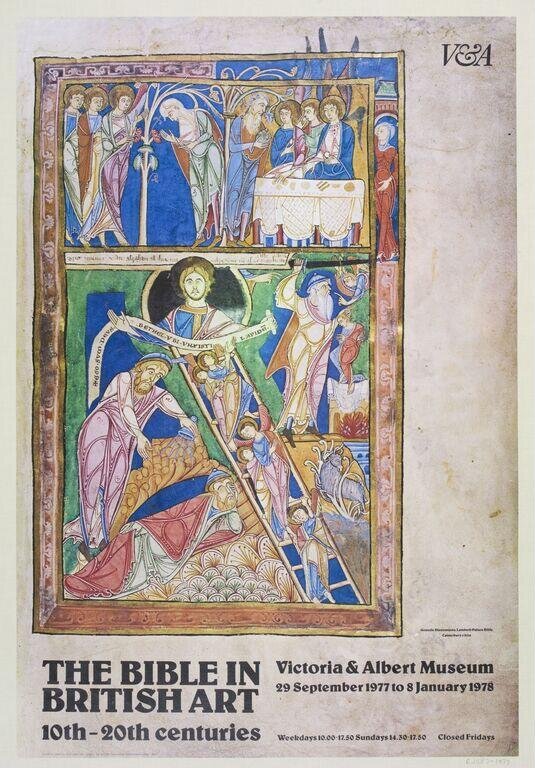 V&A
BETHEL·VBI·VNXISTI
LAPIDE
Genesis Illustrations, Lambeth Palace Bible,
Canterbury c1150
THE BIBLE IN
BRITISH ART
10th-20th centuries
Victoria & Albert Museum
29 September 1977 to 8 January 1978
Weekdays 10.00-17.50 Sundays 14.30-17.50 Closed Fridays